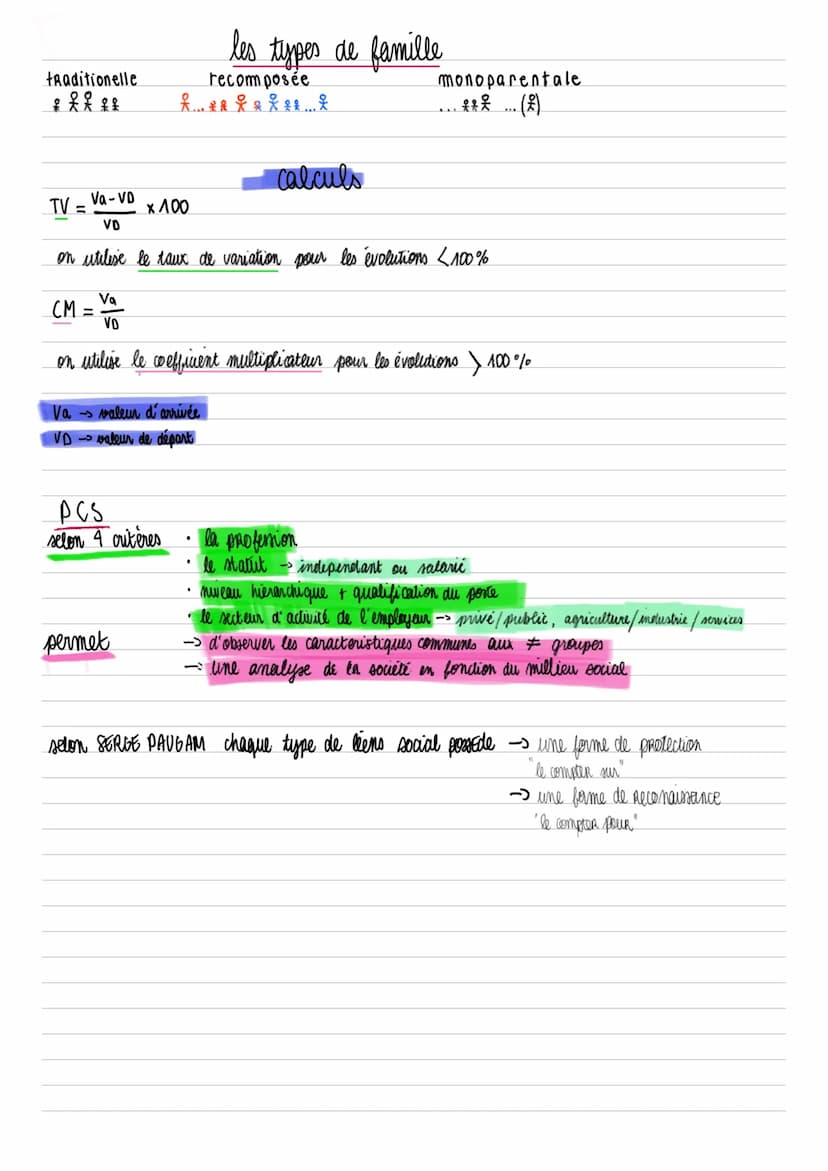 les types de famille
traditionelle recomposée monoparentale
... ... ... ... (
calculs
TV = Va-VD / VD x 100
on utilise le taux de variation pour les évolutions < 100 %
CM = Va / VD
on utilise le coefficient multiplicateur pour les évolutions > 100 %
Va → valeur d'arrivée
VD → valeur de départ
PCS
selon 4 critères • la profession
• le statut → independant ou salarié
• niveau hiérarchique + qualification du poste
• le secteur d'activité de l'employeur → privé/public, agriculture/industrie/services
permet → d'observer les caractéristiques communes aux ≠ groupes
→ une analyse de la société en fonction du millieu social
selon SERGE PAUGAM chaque type de liens social possede → une forme de protection
"le compter sur"
→ une forme de reconaissance
"le compter pour"